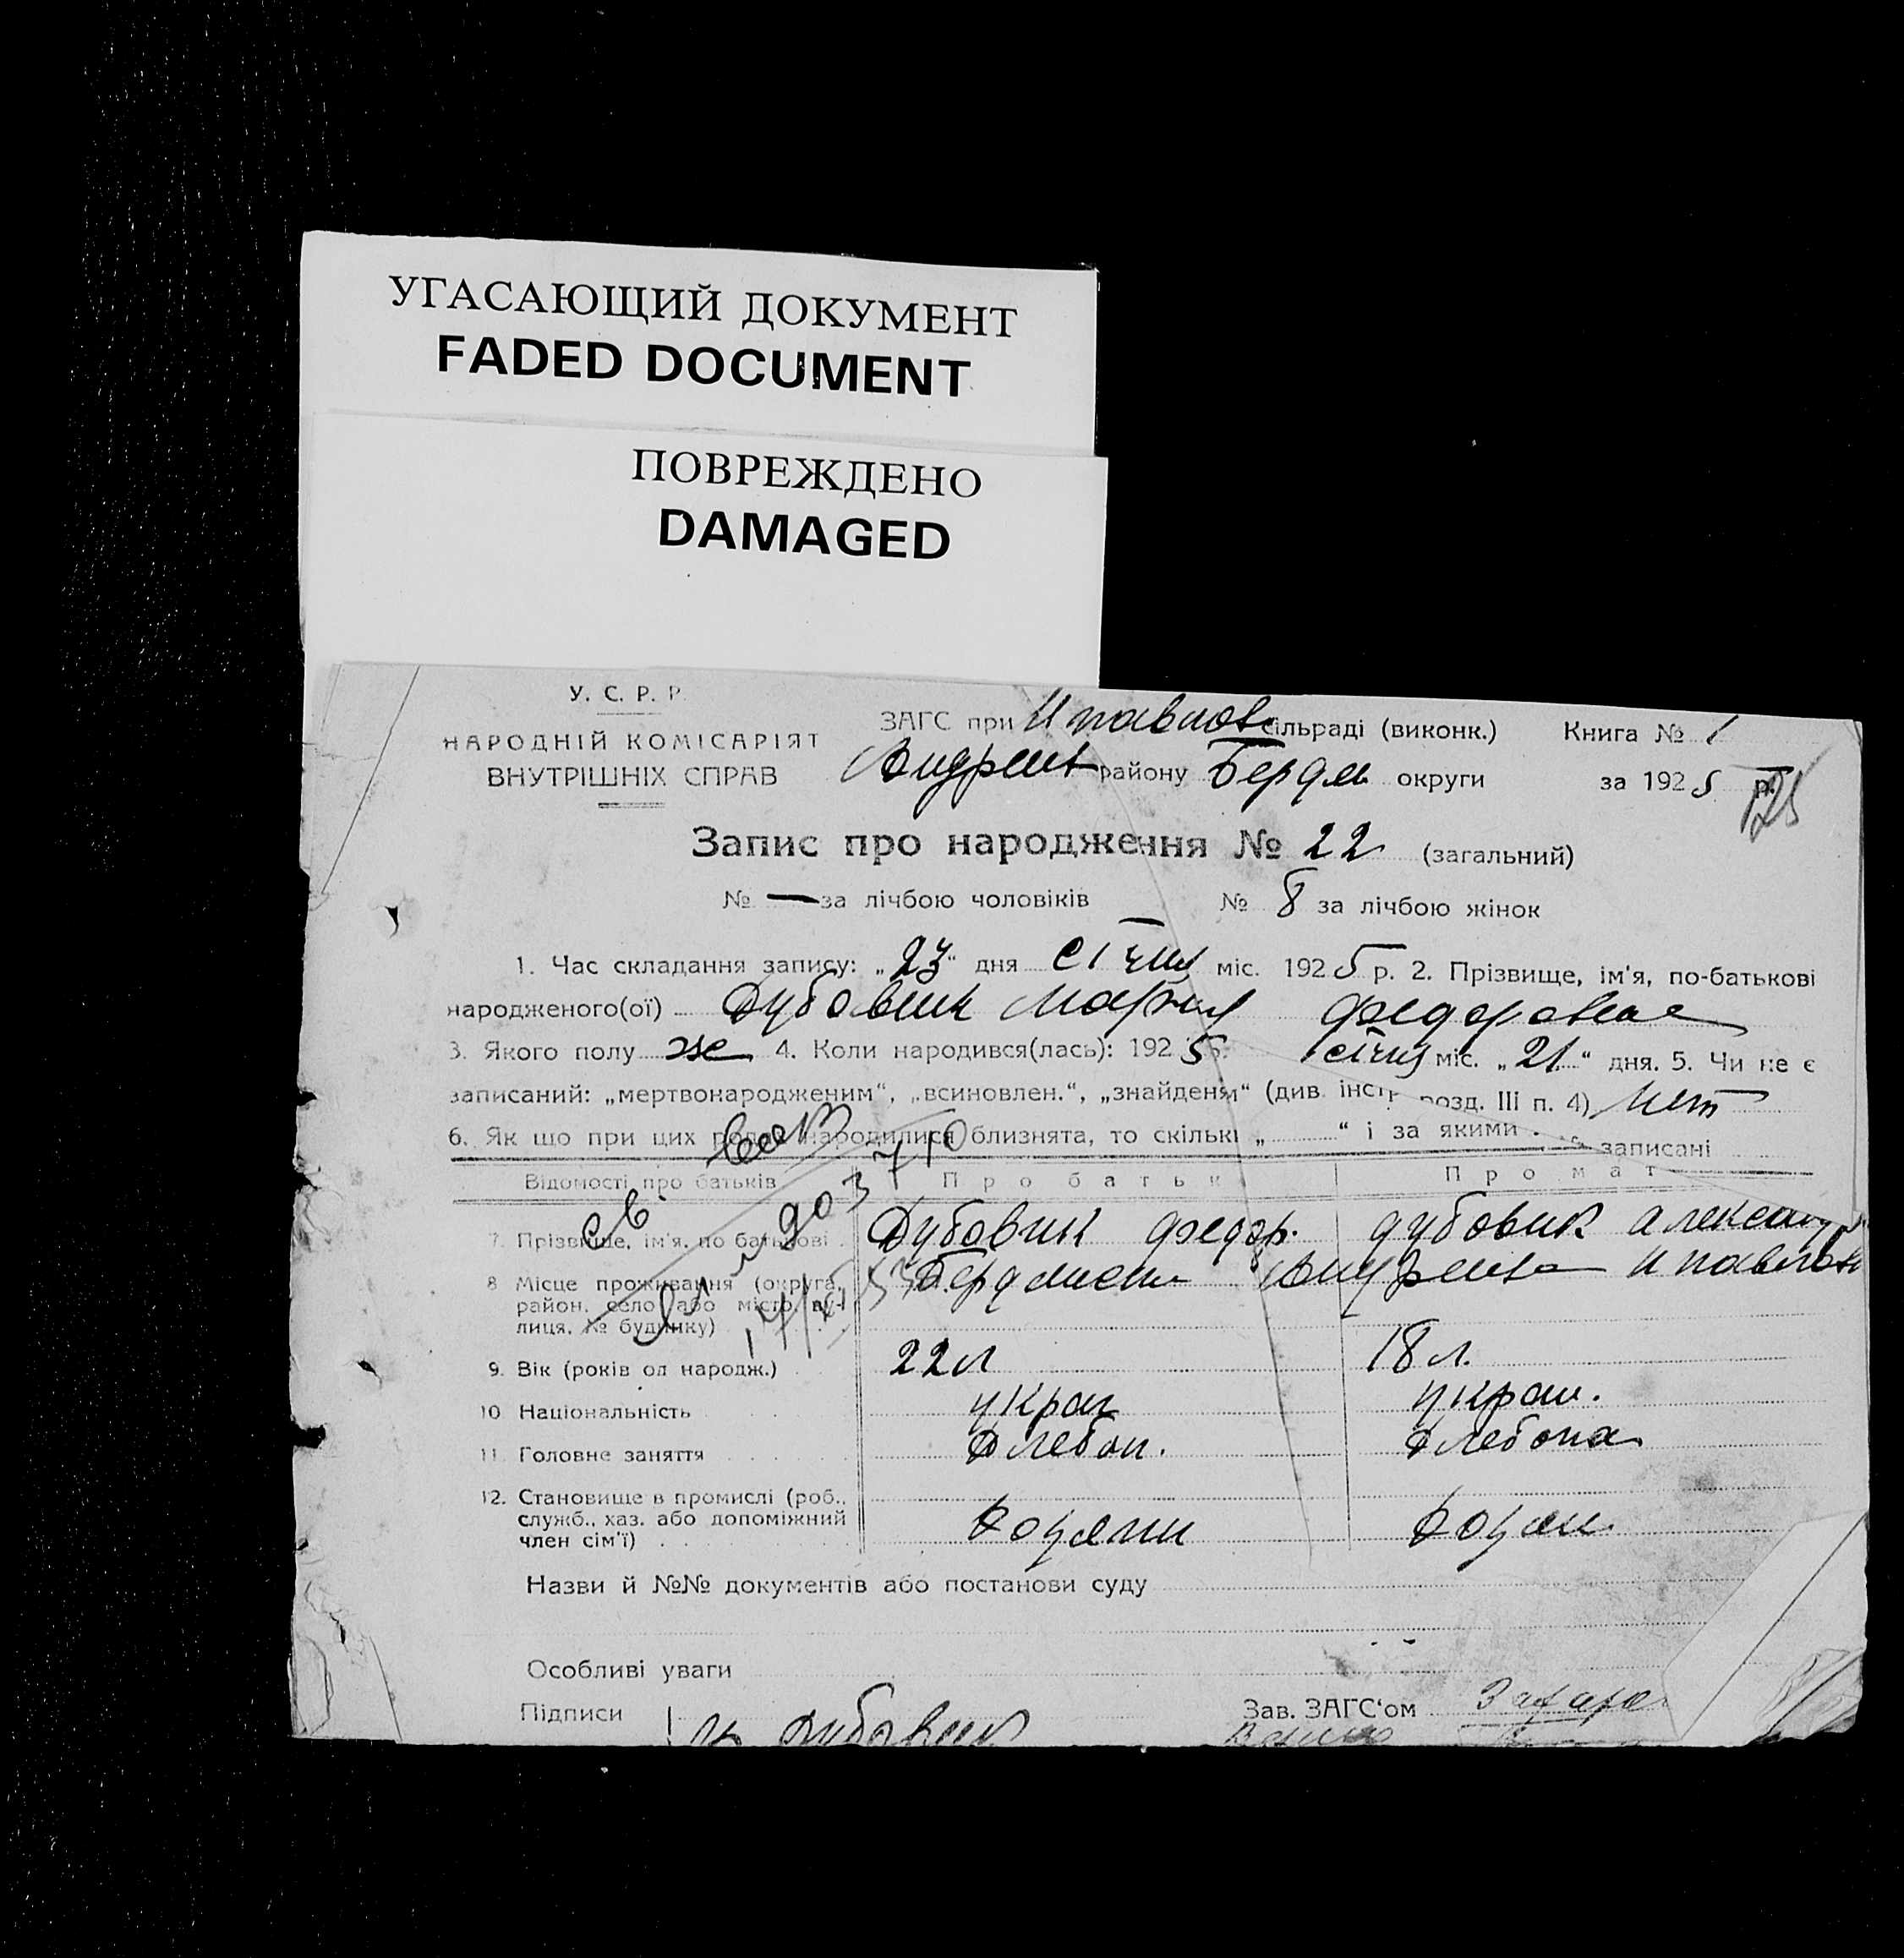 УГАСАЮЩИЙ ДОКУМЕНТ
FADED DOCUMENT
ПОВРЕЖДЕНО
DAMAGED
У. С. Р. Р.
НАРОДНІЙ КОМІСАРІЯТ
ВНУТРІШНІХ СПРАВ
ЗАГС при Н павлов сільраді (виконк.) Книга № 1
Андреев району Бердян округи за 1925 р.
Запис про народження № 22 (загальний)
№ — за лічбою чоловіків № 8 за лічбою жінок
1. Час складання запису: „23“ дня Січня міс. 1925 р. 2. Прізвище, ім'я, по-батькові
народженого(ої) Дубовик Мария Федоровна
3. Якого полу же 4. Коли народився(лась): 1925 р. січня міс. „21“ дня. 5. Чи не є
записаний: „мертвонародженим“, „всиновлен.“, „знайденям“ (див. інстр. розд. III п. 4) Нет
6. Як що при цих родах народилися близнята, то скількі „ “ і за якими записані
Відомості про батьків Про батька Про мат
7. Прізвище, ім'я, по батькові Дубовик Федор. Дубовик Александр
8 Місце проживання (округа,
район, село або місто, ву-
лиця, № будинку)
9. Вік (років од народж.) 22 л 18 л.
10 Національність украи украи.
11. Головне заняття Хлебоп. Хлебопа
12. Становище в промислі (роб.,
служб., хаз. або допоміжний
член сім'ї)
Назви й №№ документів або постанови суду
Особливі уваги
Підписи Дубовик Зав. ЗАГС'ом